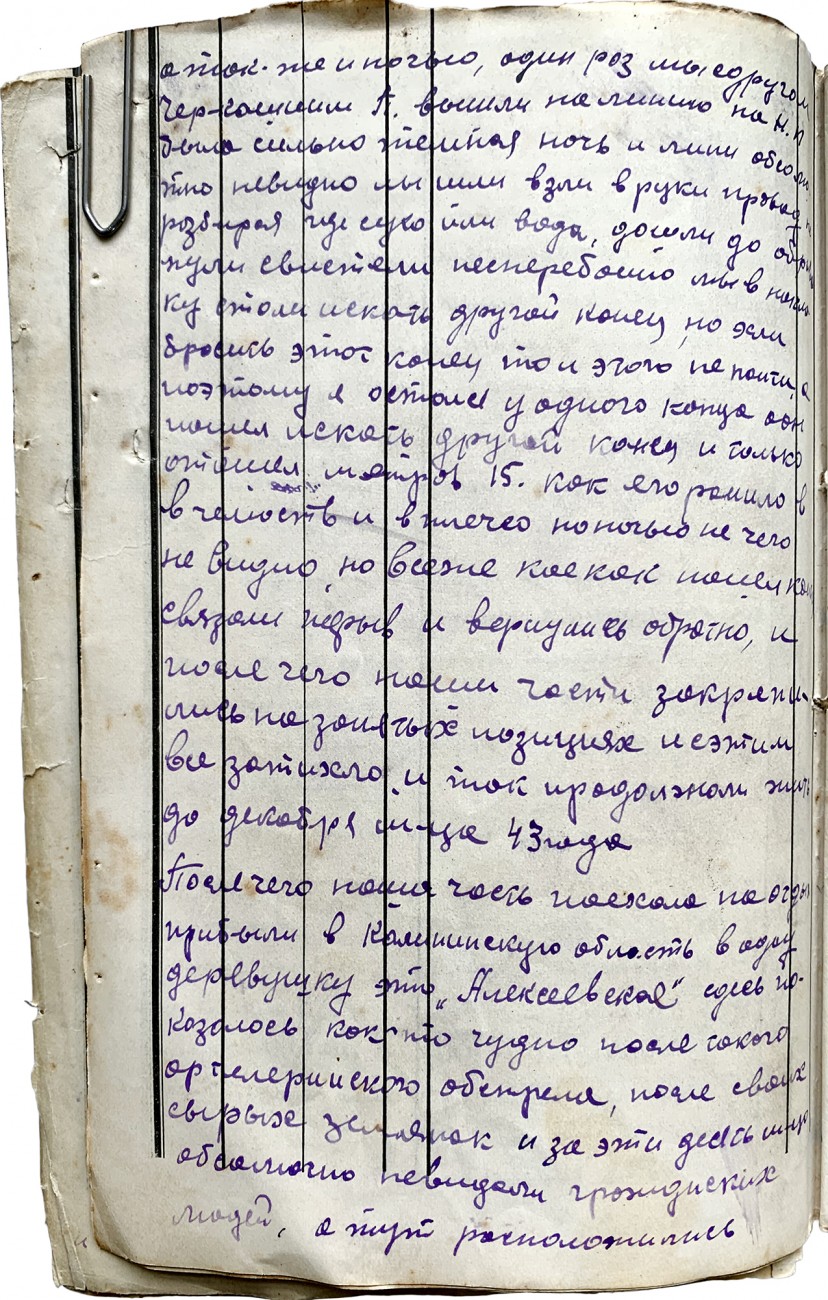 а так-же и ночью, один раз мы с другом
Черкашиным П. вышли на линию на Н.П
была сильно темная ночь и линии абсолю
тно невидно мы шли взяли в руки провод
розбирая где сухо или вода, дошли до обрыва
пули свистели несперебойно мы в
ку стали искать другой конец, но если
бросить этот конец то и этого не найти, а
поэтому я остался у одного конца а он
пошел искать другой конец и только
отошел метров 15. как его ранило в
в челюсть и в плечео но ночью не чего
не видно, но всеже коекак нашел кон
связали порыв и вернулись обратно, и
после чего наши части закрепи-
лись на занятых позициях и сэтим
все затихло, и так продолжали жить
до декабря м-ца 43 года
После чего наша часть поехала на отдых
прибыли в Калининскую область в одну
деревушку это „Алексеевское" сдесь по-
казалось как то чудно после такого
артелерийского обстрела, после своих
сырых землянок и за эти десять м-цев
абсолютно невидали гражданских
людей, а тут расположились